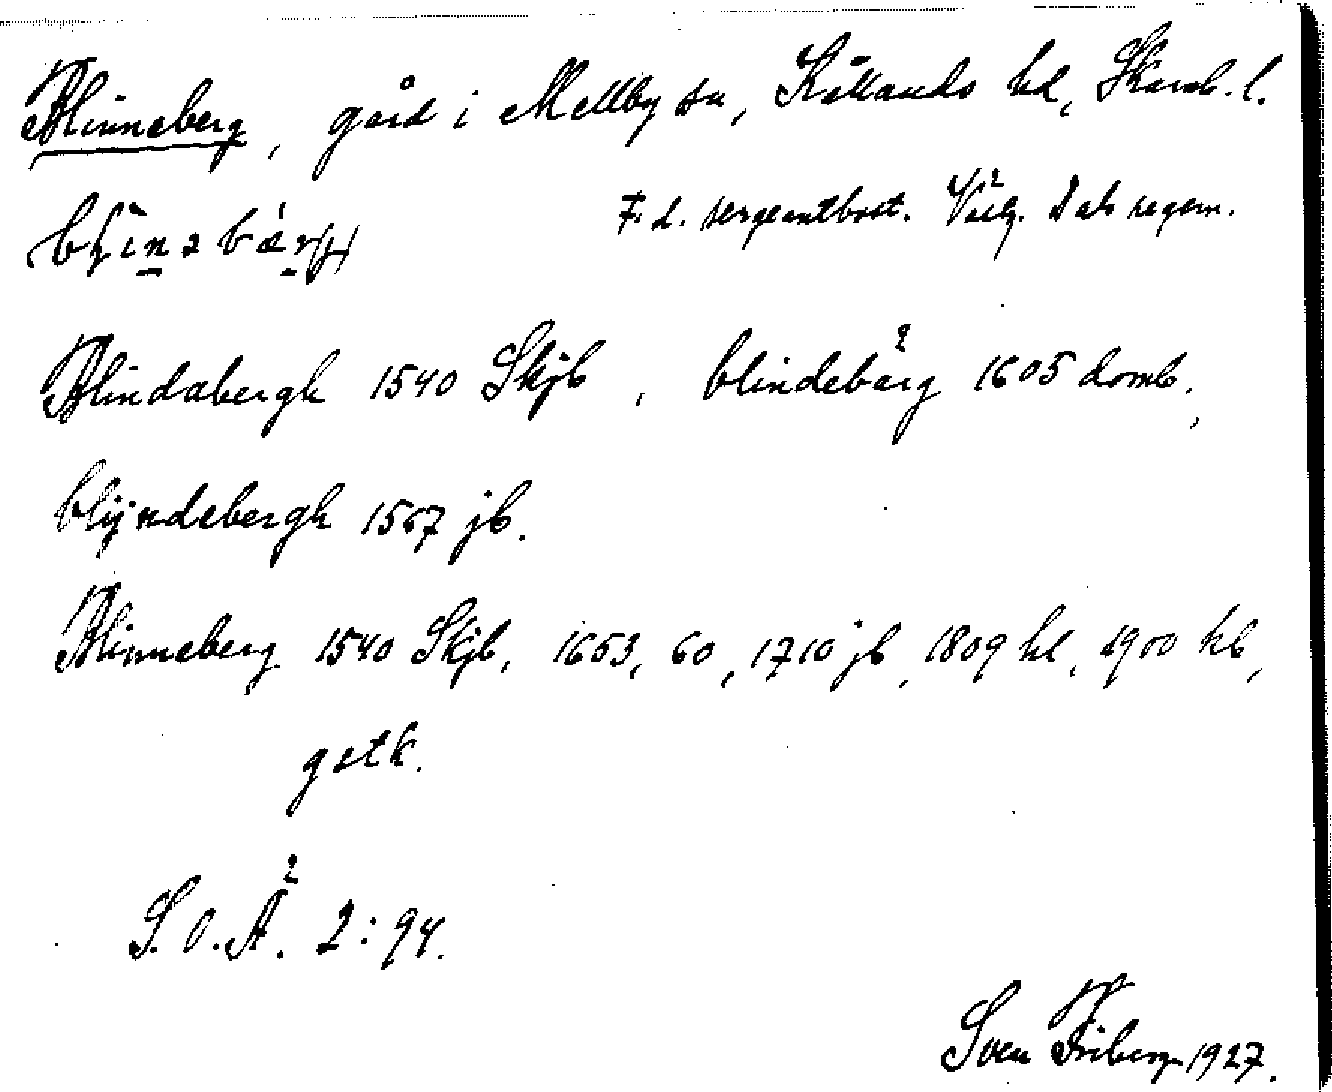 Blinneberg, gård i Mellby sn, Kållands hd, Skarab. l.
F. d. sergeantbost. Västg. Dals regem.
Blindabergh 1540 Skjb, blindebärg 1605 domb.,
blÿndebergh 1567 jb.
Blinneberg 1540 Skjb, 1653, 60, 1710 jb, 1809 hl, 1900 kb,
gstk.
S.O.Ä. 2:94.
Sven Friberg 1927.